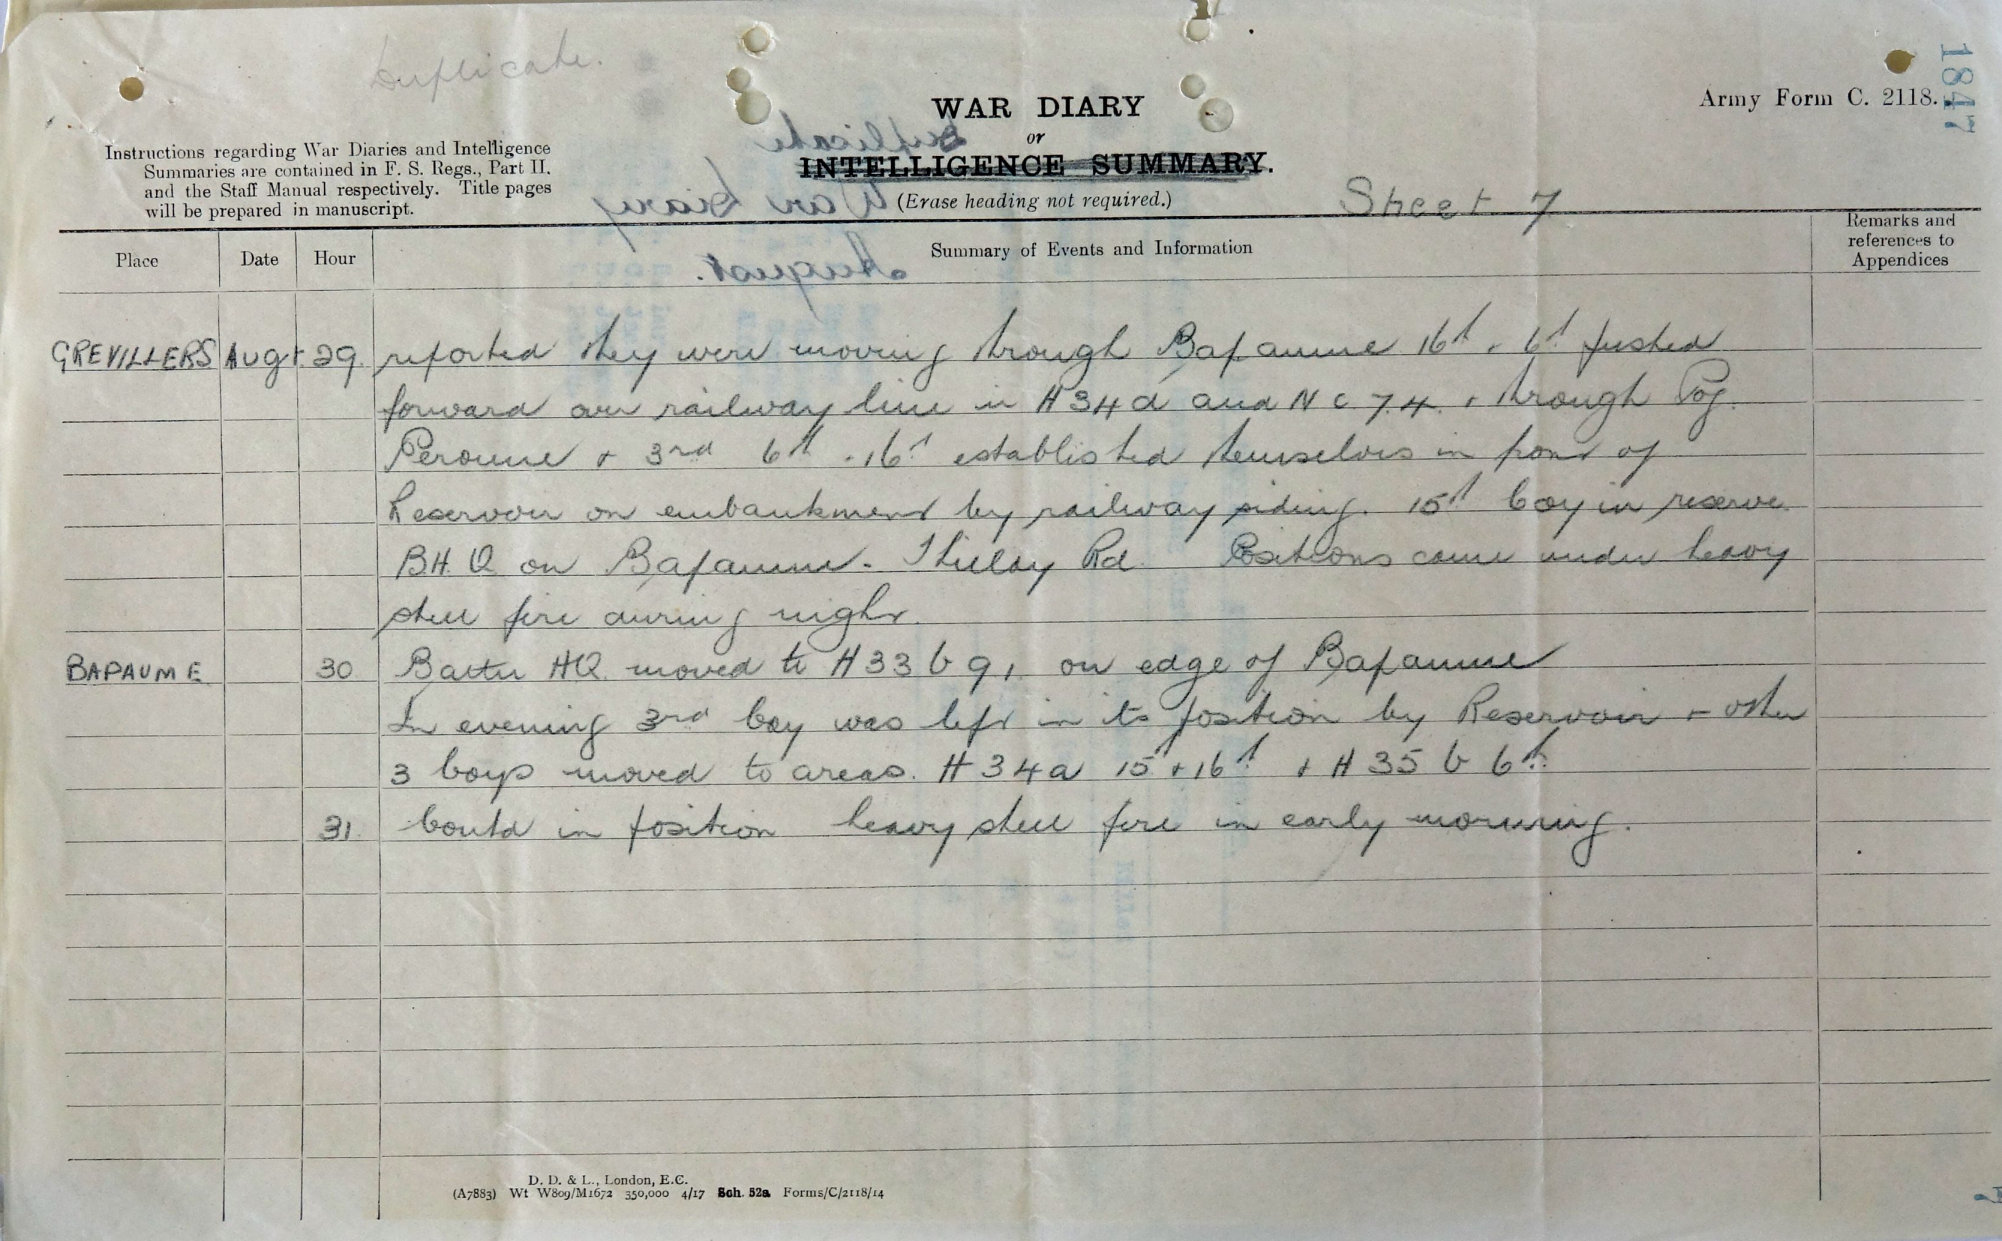 Duplicate.
1847
WAR DIARY
or
INTELLIGENCE SUMMARY.
(Erase heading not required.)
Army Form C. 2118.
Instructions regarding War Diaries and Intelligence
Summaries are contained in F. S. Regs., Part II.
and the Staff Manual respectively. Title pages
will be prepared in manuscript.
Sheet 7
Place Date Hour Summary of Events and Information Remarks and references to Appendices
GREVILLERS Augt 29. reported they were moving through Bapaume 16th & 6th pushed
forward over railway line in H 34 d and N C 7.4. & through Fbg.
Peronne & 3rd 6th & 16th established themselves in front of
Reservoir on embankment by railway siding. 15th Coy in reserve.
B.H.Q on Bapaume - Thilloy Rd. Positions came under heavy
shell fire during night.
BAPAUME 30 Battn HQ moved to H 33 b 9 1 on edge of Bapaume
In evening 3rd Coy was left in its position by Reservoir & other
3 Coys moved to areas. H 34 a 15 & 16th & H 35 b 6th
31. Contd in position heavy shell fire in early morning.
D. D. & L., London, E.C.
(A7883) Wt W809/M1672 350,000 4/17 Sch. 52a Forms/C/2118/14